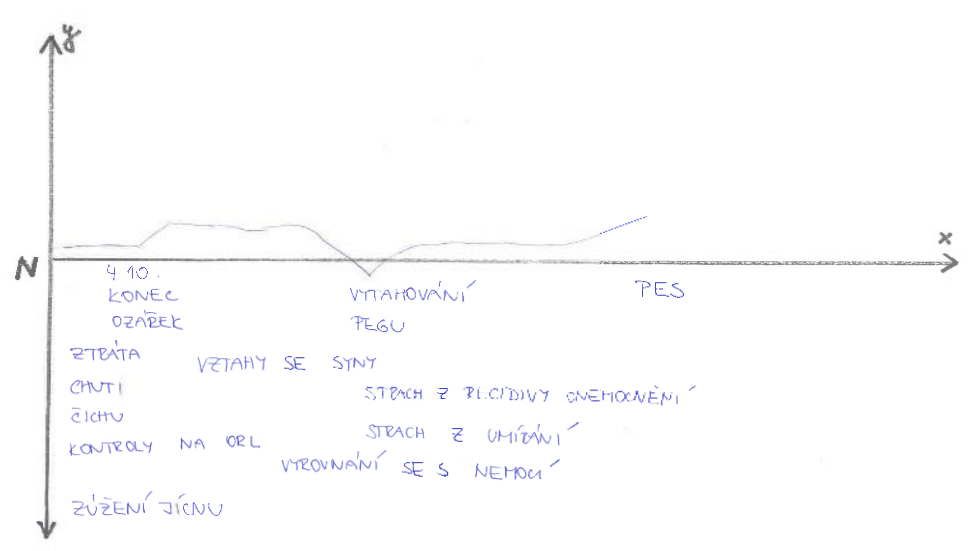 y
x
N
4 10.
KONEC
OZÁŘEK
VYTAHOVÁNÍ
PEGU
PES
ZTRÁTA
CHUTI
ČICHU
VZTAHY SE SYNY
STRACH Z RECIDIVY ONEMOCNĚNÍ
KONTROLY NA ORL
STRACH Z UMÍRÁNÍ
VYROVNÁNÍ SE S NEMOCÍ
ZÚŽENÍ JÍCNU